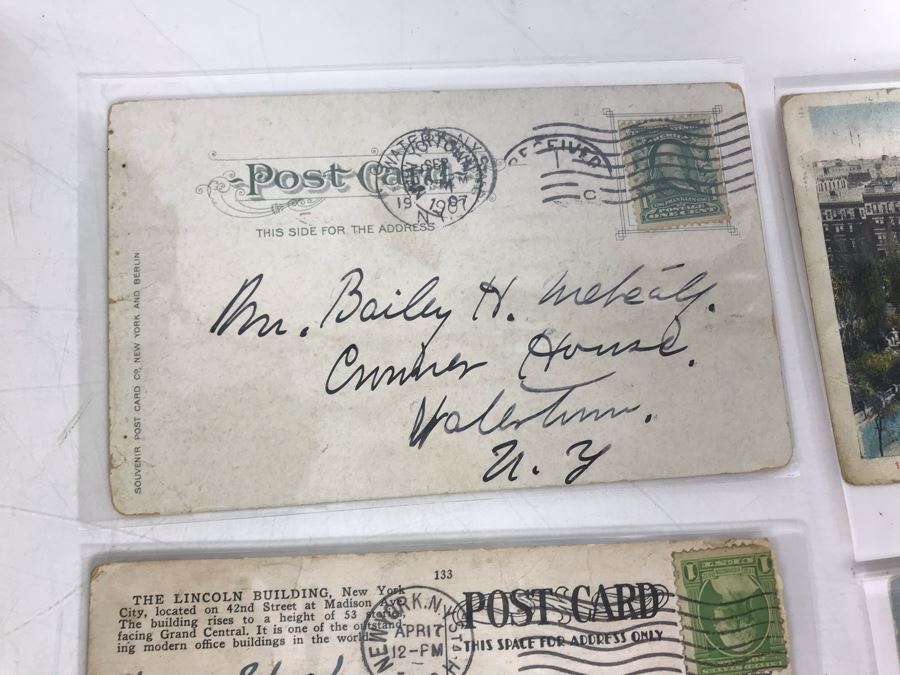 Post Card
WATERTOWN, N.Y.
SEP
1907
RECEIVED
C
FRANKLIN
ONE CENT
THIS SIDE FOR THE ADDRESS
SOUVENIR POST CARD Cº, NEW YORK AND BERLIN
Mr. Bailey H. Metcalf.
House.
Watertown.
N. Y
133
THE LINCOLN BUILDING, New York
City, located on 42nd Street at Madison Ave.
The building rises to a height of 53 stories,
facing Grand Central. It is one of the outstand-
ing modern office buildings in the world.
NEW YORK, N.Y.
APR 17
12-PM
POST CARD
THIS SPACE FOR ADDRESS ONLY
1 1